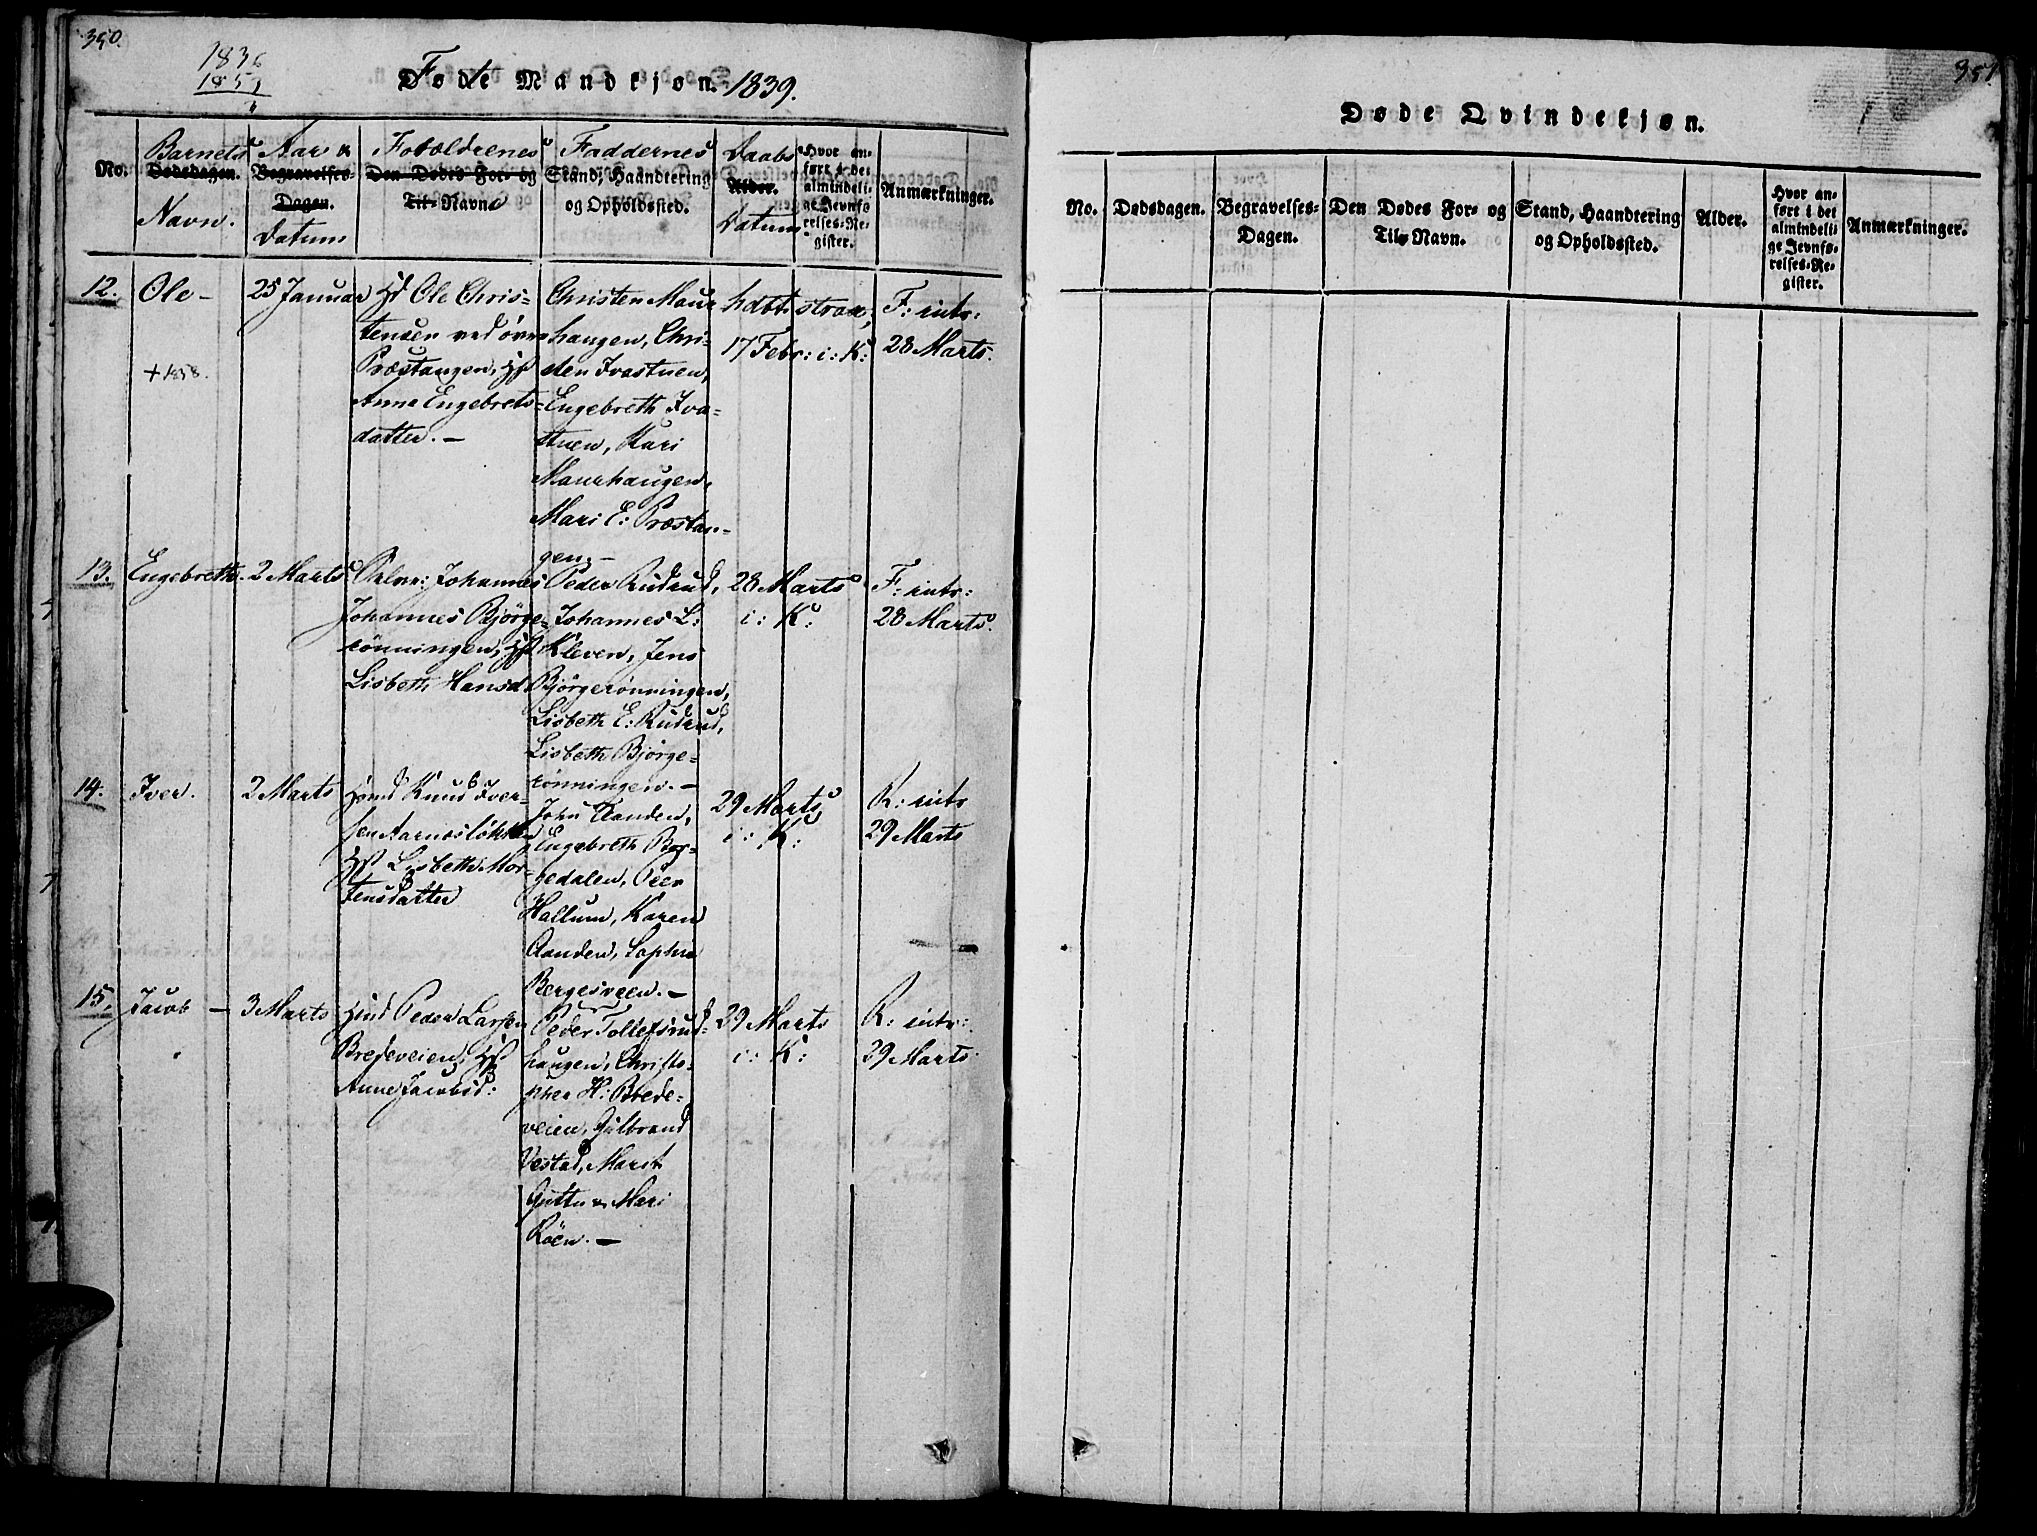 350.
1836
1851
Fødte Mandkjøn. 1839.
No.
Barnets
Dødsdagen.
Navn.
Aar &
Begravelses-
Dagen.
Datum
Forældrenes
Den Dødes For- og
Til-Navne
Faddernes
Stand, Haandtering
og Opholdssted.
Daabs
Alder.
Datum
Hvor an-
ført i det
almindeli-
ge Jevnfø-
relses-Re-
gister.
Anmærkninger.
12.
Ole -
+ 1858.
25 Januar
Ole Chris-
tensen ved øvre
Præstangen,
Anna Engebrets-
datter. -
Christen Maur
haugen, Chri-
sten Ivastuen,
Engebreth Iva-
stuen, Kari
Maurhaugen,
Mari E: Præstan-
gen. -
hdbt. strax,
17 Febr: i: K:
F: intr:
28 Marts.
13.
Engebreth.
2 Marts
Johannes
Johannes Bjørge-
rønningen,
Lisbeth Hansd
Peder Rudrud,
Johannes L:
Kleven, Jens
Bjørgerønningen,
Lisbeth E: Rudrud,
Lisbeth Bjørge-
rønningen. -
28 Marts
i: K:
F: intr:
28 Marts.
14.
Iver.
2 Marts
Knud Iver-
sen Aarnesløkken
Lisbeth Mor-
tensdatter
John Aanden,
Engebreth Ber-
gedalen, Peer
Hallum, Karen
Aanden, Sophia
Bergesveen. -
29 Marts
i: K:
R: intr
29 Marts
15.
Jacob -
3 Marts
Peder Larsen
Bredeveien,
Anne Jacobsd:
Peder Tollefsrud-
haugen, Christo-
pher H: Brede-
veien, Gulbrand
Vestad, Marit
Guttu & Mari
Røen. -
29 Marts
i: K:
R: intr:
29 Marts.
351.
Døde Qvindekjøn.
No.
Dødsdagen.
Begravelses-
Dagen.
Den Dødes For- og
Til-Navn.
Stand, Haandtering
og Opholdssted.
Alder.
Hvor an-
ført i det
almindeli-
ge Jevnfø-
relses-Re-
gister.
Anmærkninger.